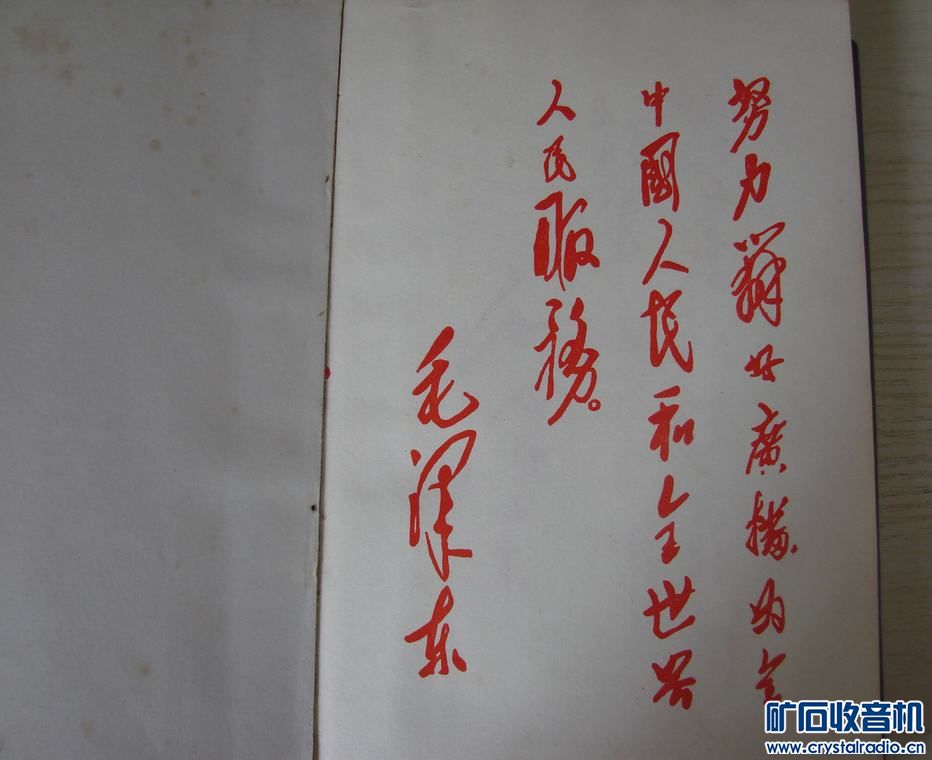 努力辦好廣播为全
中國人民和全世界
人民服務。
毛泽东
矿石收音机
www.crystalradio.cn